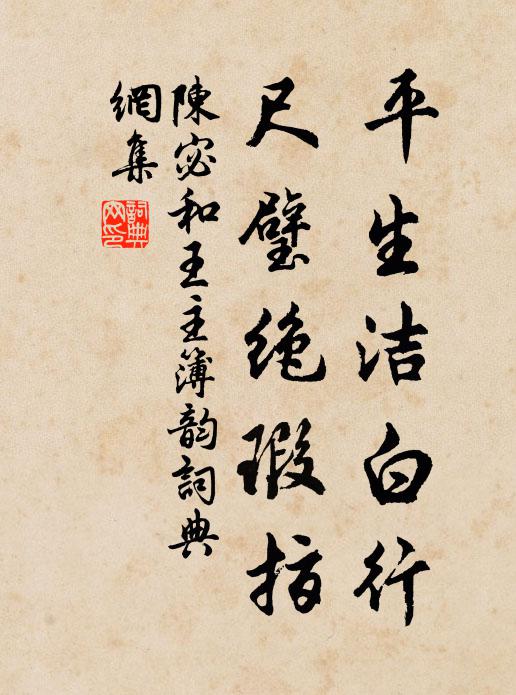 平生洁白行
尺璧绝瑕指
陳宓和王主簿韵詞典
網集
詞典
网印